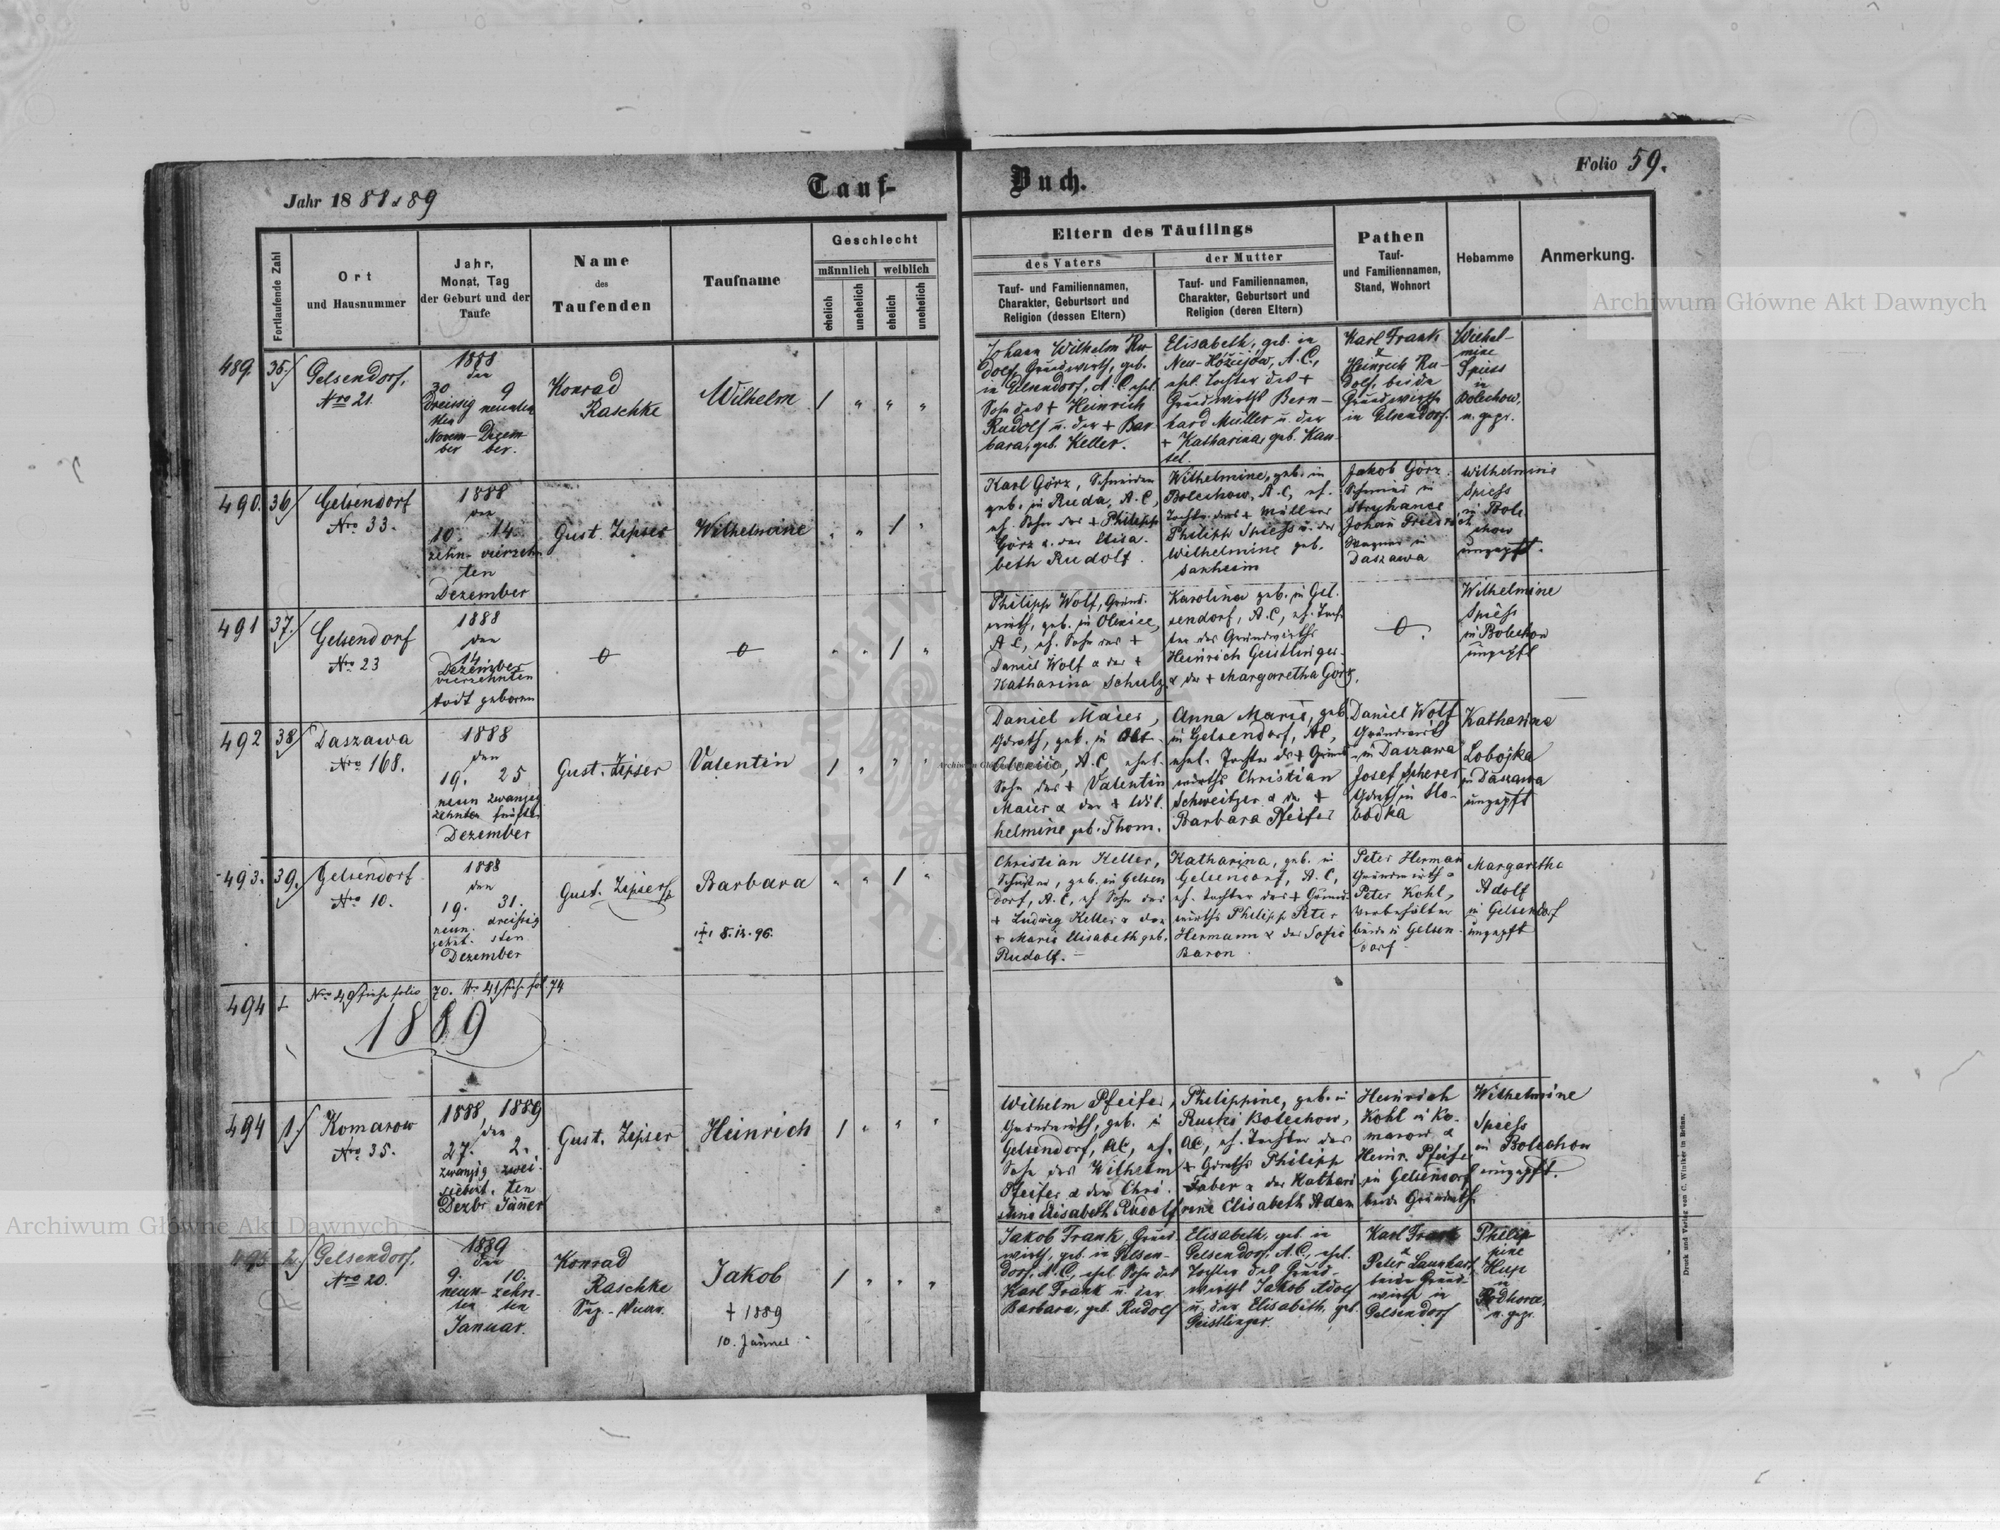 Jahr 1888 & 89
Tauf-
Buch.
Folio 59.
Fortlaufende Zahl
Ort
und Hausnummer
Jahr,
Monat, Tag
der Geburt und der
Taufe
Name
des
Taufenden
Taufname
Geschlecht
männlich
weiblich
ehelich
unehelich
ehelich
unehelich
Eltern des Täuflings
des Vaters
Tauf- und Familiennamen,
Charakter, Geburtsort und
Religion (dessen Eltern)
der Mutter
Tauf- und Familiennamen,
Charakter, Geburtsort und
Religion (deren Eltern)
Pathen
Tauf-
und Familiennamen,
Stand, Wohnort
Hebamme
Anmerkung.
489
35./
Gelsendorf,
Nro 21.
1888
den
30 9
Dreissig neunten
sten
Novem- Dezem-
ber ber.
Konrad
Raschke
Wilhelm
Johann Wilhelm Ru-
dolf, Grundwirth, geb.
in Gelsendorf, A.C. ehel.
Sohn des + Heinrich
Rudolf u. der + Bar-
bara, geb. Keller.
Elisabeth, geb. in
Neu-, A.C.,
ehel. Tochter des +
Grundwirths Bern-
hard Müller u. der
+ Katharina, geb. Kan-
tel.
Karl Frank,
&
Heinrich Ru-
dolf, beide
Grundwirthe
in Gelsendorf.
Wiehel-
mine
Spiess
in
Bolechow,
u. gepr.
490.
36/
Gelsendorf
Nro 33.
1888
den
10. 14.
zehn- vierzehn
ten
Dezember
Gust. Zipser
Wilhelmine
Karl Görz, Schneider
geb. in Ruda, A.C.,
eh. Sohn des + Philipp
Görz u. der Elisa-
beth Rudolf.
Wilhelmine, geb. in
Bolechow, A.C, eh.
Tochter des + Müllers
Philipp Spiess u. der
Wilhelmine geb.
Sauheim
Jakob Görz
Schmied in
Stryhance
Johan Friedrich
Wagner in
Daszawa
Wilhelmine
Spiess
in Bole
chow
ungepft.
491
37./
Gelsendorf
Nro 23
1888
den
14
Dezember
vierzehnten
todt geboren
Philipp Wolf, Grund-
wirth, geb. in Olexice,
A.C, eh. Sohn des +
Daniel Wolf & der +
Katharina Schulz
Karolina geb. in Gel-
sendorf, A.C, eh. Toch-
ter des Grundwirths
Heinrich Geistlinger
& der + Margaretha Görz.
Wilhelmine
Spiess
in Bolechow
ungepft
492
38/
Daszawa
Nro 168.
1888
den
19. 25
neun zwanzig
zehnten fünften
Dezember
Gust. Zipser
Valentin
Daniel Maier,
Gdwth, geb. in Alt-
Olexice, A.C, ehel.
Sohn des + Valentin
Maier & der + Wil-
helmine geb. Thom.
Anna Marie, geb.
in Gelsendorf, AC,
ehel. Tochter des + Grund-
wirths Christian
Schweitzer & der +
Barbara Pfeifer
Daniel Wolf
Grundwirth
in Daszawa
Josef Scherer
Gdwth in Slo-
bodka
Katharina
Lobojka
in Daszawa
ungepft
493.
39./
Gelsendorf
Nro 10.
1888
den
19. 31.
neun- dreissig
zehnt. sten
Dezember
Gust. Zipser
Barbara
+ 8.12.96.
Christian Keller,
Schuster, geb. in Gelsen
dorf, A.C, eh Sohn des
+ Ludwig Keller & der
+ Marie Elisabeth geb.
Rudolf.
Katharina, geb. in
Gelsendorf, A.C,
eh. Tochter des + Grund-
wirths Philipp Peter
Hermann & der Sofie
Baron.
Peter Herman
Grundwirth &
Peter Kohl,
Vorbehälter
beide in Gelsen-
dorf
Margaretha
Adolf
in Gelsendorf
ungepft
494
Nro 40/ siehe folio 70. Nro 41/ siehe fol 74
1889
494
1./
Komarow
Nro 35.
1888, 1889
den
27. 2.
zwanzig zwei-
siebent. ten
Dezbr Jänner
Gust. Zipser
Heinrich
Wilhelm Pfeifer,
Grundwirth, geb. in
Gelsendorf, AC, eh.
Sohn des Wilhelm
Pfeifer & der Chri-
stine Elisabeth Rudolf
Philippine, geb. in
Ruski Bolechow,
AC, eh. Tochter des
+ Gdwths Philipp
Faber & der Kathari
rine Elisabeth Adam
Heinrich
Kohl in Ko-
marow &
Heinr. Pfeifer
in Gelsendorf
beide Grundwth
Wilhelmine
Spiess
in Bolechow
ungepft.
495
2./
Gelsendorf,
Nro 20.
1889
den
9. 10.
neun- zehn-
ten ten
Januar.
Konrad
Raschke
Sup.-Vicar.
Jakob
+ 1889
10. Jänner
Jakob Frank, Grund-
wirth, geb. in Gelsen-
dorf, A.C., ehel. Sohn des
Karl Frank u. der
Barbara, geb. Rudolf
Elisabeth, geb. in
Gelsendorf, A.C., ehel.
Tochter des Grund-
wirths Jakob Adolf
u. der Elisabeth, geb.
Geistlinger.
Karl Frank
&
Peter Launhart,
beide Grund-
wirthe in
Gelsendorf
Philip-
pine
Hup
in
Podhorce,
u. gepr.
Druck und Verlag von C. Winiker in Brünn.
Archiwum Główne Akt Dawnych
Archiwum Główne Akt Dawnych